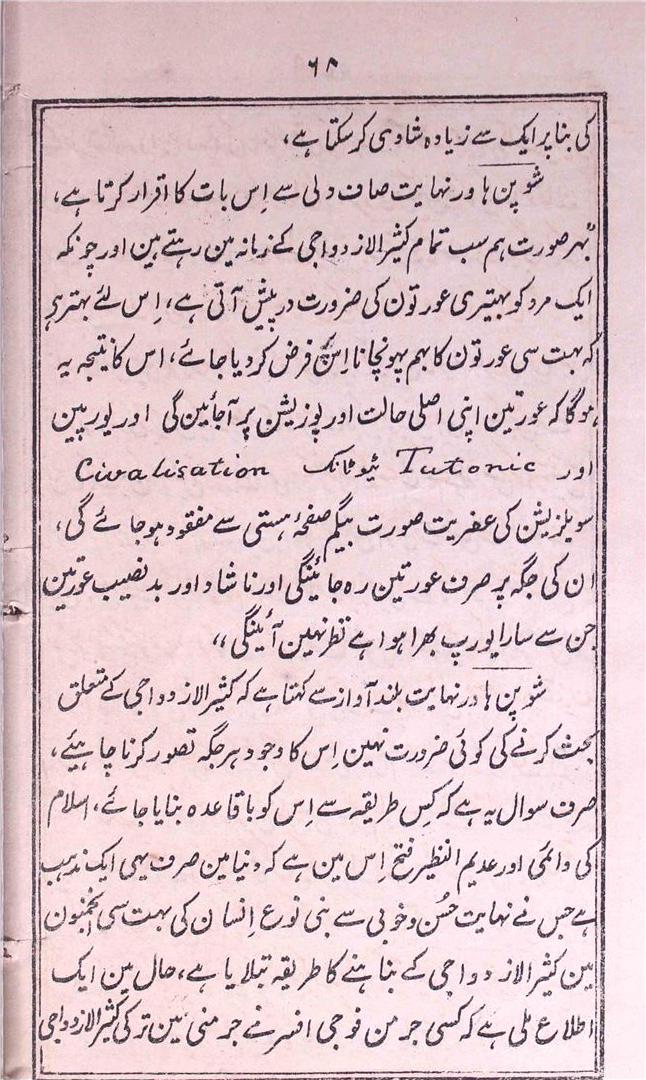 ۶۸
کی بنا پر ایک سے زیادہ شادی کر سکتا ہے،
شوپن ہاور نہایت صاف دلی سے اِس بات کا اقرار کرتا ہے،
"بہر صورت ہم سب تمام کثیر الازدواجی کے زمانہ مین رہتے ہین اور چونکہ
ایک مرد کو بہتیری عورتون کی ضرورت درپیش آتی ہے، اِس لئے بہتر ہے
کہ بہت سی عورتون کا بہم پہونچانا اِس پر فرض کر دیا جائے، اس کا نتیجہ یہ
ہوگا کہ عورتین اپنی اصلی حالت اور پوزیشن پر آجائین گی اور یورپین
اور Tutonic ٹیوٹانک Civalisation
سویلزیشن کی عفریت صورت بیگم صفحۂ ہستی سے مفقود ہو جائے گی،
ان کی جگہ پر صرف عورتین رہ جائینگی اور ناشاد اور بد نصیب عورتین
جن سے سارا یورپ بھرا ہوا ہے نظر نہین آئینگی"
شوپن ہاور نہایت بلند آواز سے کہتا ہے کہ کثیر الازدواجی کے متعلق
بحث کرنے کی کوئی ضرورت نہین اِس کا وجود ہر جگہ تصور کرنا چاہیئے،
صرف سوال یہ ہے کہ کِس طریقہ سے اِس کو باقاعدہ بنایا جائے، اسلام
کی دائمی اور عدیم النظیر فتح اِس مین ہے کہ دنیا مین صرف یہی ایک مذہب
ہے جس نے نہایت حُسن و خوبی سے بنی نوع اِنسان کی بہت سی انجمنون
مین کثیر الازدواجی کے بنا ہنے کا طریقہ بتلایا ہے، حال مین ایک
اطلاع ملی ہے کہ کسی جرمن فوجی افسر نے جرمنی مین ترکی کثیر الازدواجی